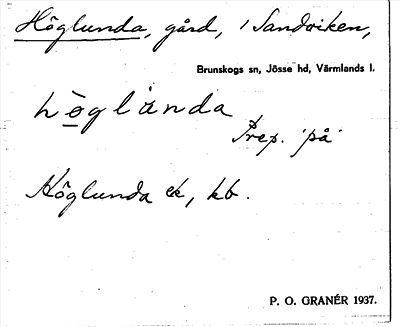 Höglunda, gård, i Sandviken,
Brunskogs sn, Jösse hd, Värmlands l.
höglùnda
Prep. 'på'
Höglunda ek, kb.
P. O. GRANÉR 1937.